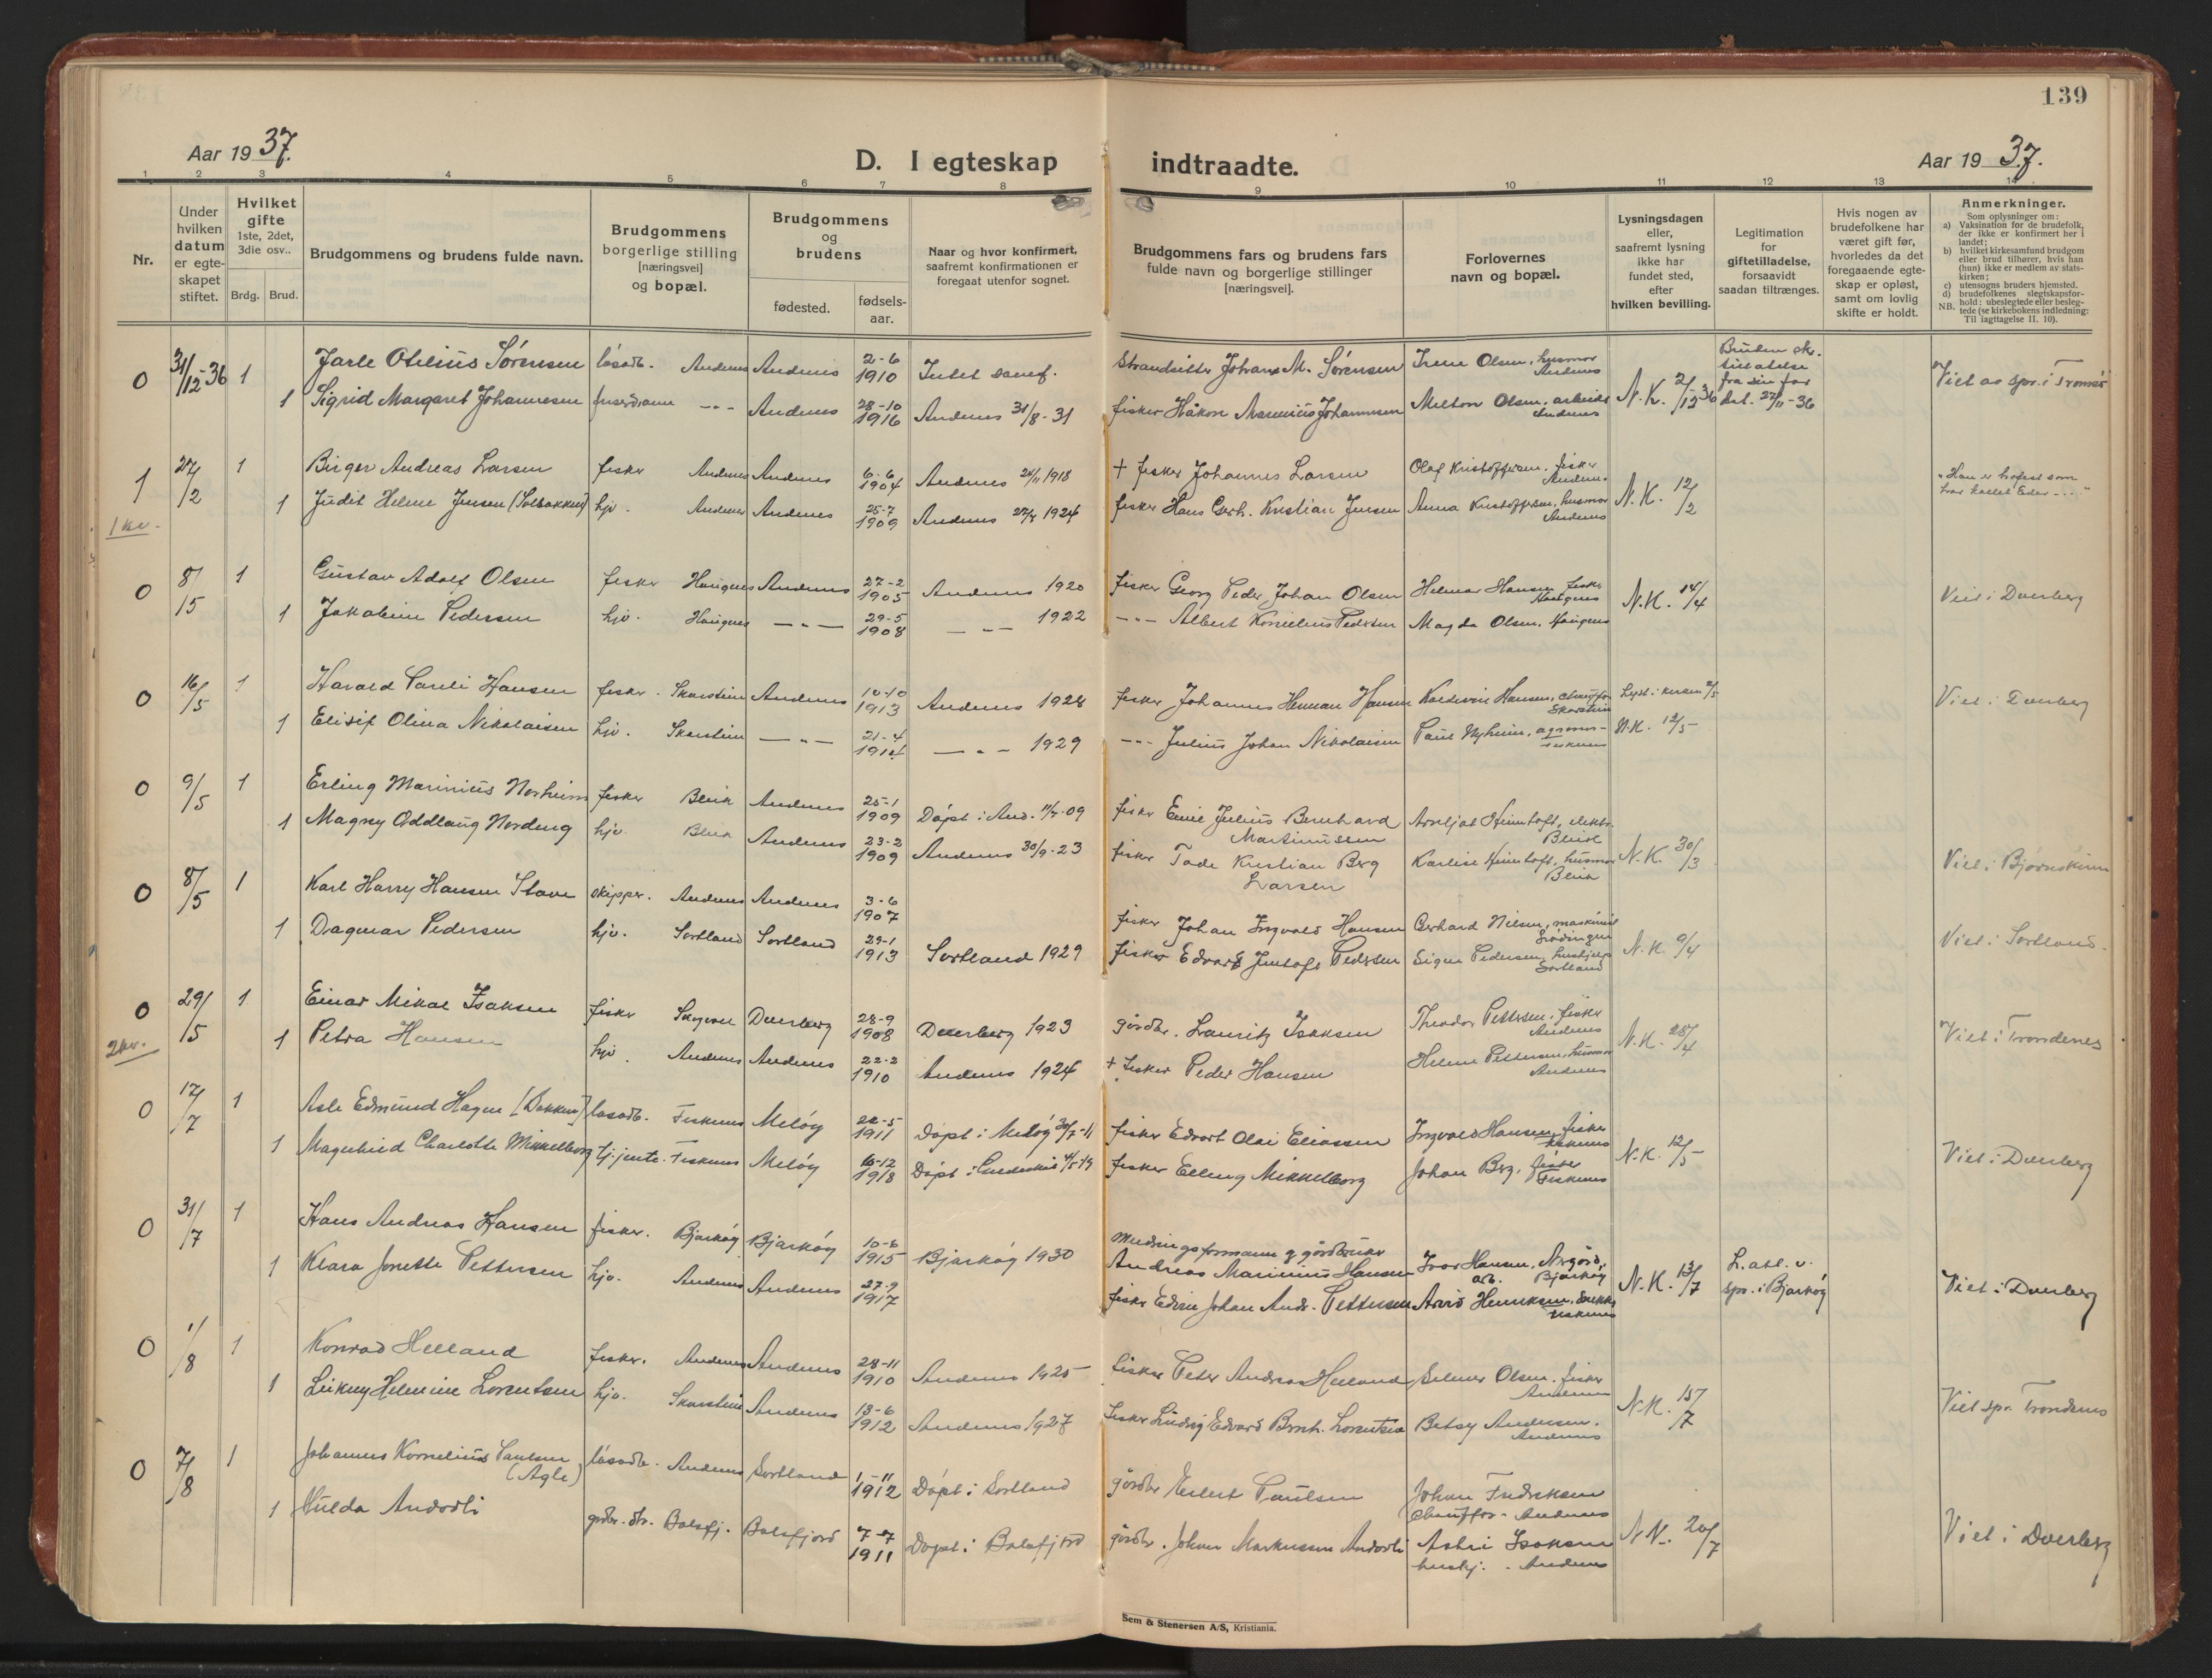 139
Aar 1937.
D. I egteskap indtraadte.
Aar 1937.
1 2 3 4 5 6 7 8 9 10 11 12 13 14
Nr.
Under hvilken datum er egteskapet stiftet.
Hvilket gifte 1ste, 2det, 3die osv..
Brdg. Brud.
Brudgommens og brudens fulde navn.
Brudgommens borgerlige stilling [næringsvei] og bopæl.
Brudgommens og brudens
fødested.
fødselsaar.
Naar og hvor konfirmert, saafremt konfirmationen er foregaat utenfor sognet.
Brudgommens fars og brudens fars fulde navn og borgerlige stillinger [næringsvei].
Forlovernes navn og bopæl.
Lysningsdagen eller, saafremt lysning ikke har fundet sted, efter hvilken bevilling.
Legitimation for giftetilladelse, forsaavidt saadan tiltrænges.
Hvis nogen av brudefolkene har været gift før, hvorledes da det foregaaende egteskap er opløst, samt om lovlig skifte er holdt.
Anmerkninger.
Som oplysninger om:
a) Vaksination for de brudefolk, der ikke er konfirmert her i landet;
b) hvilket kirkesamfund brudgom eller brud tilhører, hvis han (hun) ikke er medlem av statskirken;
c) utensogns bruders hjemsted.
d) brudefolkenes slegtskapsforhold: ubeslegtede eller beslegtede (se kirkebokens indledning: NB. Til iagttagelse II. 10).
0 31/12-36 1 Jarle Otelius Sørensen løsarb. Andenes Andenes 2-6 1910 strandsitter Johans M. Sørensen Irene Olsen, husmor Andenes N.K. 2/12 36 Bruden sk. fra sin far dat. 27/11-36 Viet av spr. i Tromsø
1 Sigrid Margaret Johannesen Andenes 28-10 1916 Andenes 31/8-31 fisker Håkon Johannesen Milton Olsen, arbeids Andenes
1 27/2 1 Birger Andreas Larsen fisker Andenes Andenes 6-6 1904 Andenes 24/11 1918 + fisker Johannes Larsen Olaf Kristoffersen, fisker Andenes N.K. 12/2
1 kr. 1 Judit Helene Jensen (Solbakken) hjv. Andenes Andenes 25-7 1909 Andenes 1924 fisker Hans Gerh. Kristian Jensen Anna Kristoffersen, husmor Andenes
0 8/5 1 Gustav Adolf Olsen fisker Haugnes Andenes 27-2 1905 Andenes 1920 fisker Georg Peder Johan Olsen Helmer Hansen fisker Haugnes N.K. 14/4 Viet i Dverberg
1 Jakobine Pedersen hjv. Haugnes — " — 29-5 1908 — " — 1922 - " - Albert Kornelius Pedersen Magda Olsen, Haugnes
0 16/5 1 Harald Pauli Hansen fisker Skarstein Andenes 10-10 1913 Andenes 1928 fisker Johannes Herman Hansen Hansen, chauffør Skarstein Lyst i kirken 2/5 Viet i Dverberg
1 Elisif Olina Nikolaisen hjv. Skarstein — " — 21-4 1914 — " — 1929 - " - Julius Johan Nikolaisen Paul Nyheim, N.K. 12/5
0 9/5 1 Erling Marinius Norheim fisker Bleik Andenes 25-1 1909 Døpt i And. 11/7-09 fisker Emil Julius Bernhard Martinussen Arnljot Heimtoft, elektr. Bleik N.K. 30/3 Viet i Bjørnskinn
1 Magny Oddlaug Nordeng hjv. Bleik Andenes 23-2 1909 Andenes 30/9-23 fisker Tode Kristian Berg Larsen Karlise Heimtoft, husmor Bleik
0 8/5 1 Karl Harry Hansen Stave skipper. Andenes Andenes 3-6 1907 fisker Johan Ingvald Hansen Gerhard Nilsen, maskinist Lødingen N.K. 9/4 Viet i Sortland
1 Dagmar Pedersen hjv. Sortland Sortland 29-1 1913 Sortland 1929 fisker Edvard Jentoft Pedersen Signe Pedersen, Sortland
0 29/5 1 Einar Mikal Isaksen fisker Skogvoll Dverberg 28-9 1908 Dverberg 1923 gårdbr. Lauritz Isaksen Theodor Pettersen, fisker Andenes N.K. 28/4 Viet i Trondenes
2 kr. 1 Petra Hansen hjv. Andenes Andenes 22-2 1910 Andenes 1924 + fisker Peder Hansen Helene Pettersen, husmor Andenes
0 17/7 1 Asle Edmund Hagen [Bakken] løsarb. Fiskenes Meløy 22-5 1911 Døpt i Meløy 30/7-11 fisker Edvart Olai Eliassen Ingvald Hansen, fisker Fiskenes N.K. 12/5 Viet i Dverberg
1 Magnhild Charlotte Mikkelborg tj.jente. Fiskenes Meløy 1918 Døpt i fisker Erling Mikkelborg Johan Berg, fisker Fiskenes
0 31/7 1 Hans Andreas Hansen fisker. Bjarkøy Bjarkøy 10-6 1915 Bjarkøy 1930 gårdbruker Andreas Marinius Hansen Ivar Hansen, arb. Bjarkøy N.K. 13/7 L. att. v. spr. i Bjarkøy Viet i Dverberg
1 Klara Jonette Pettersen hjv. Andenes Andenes 27-9 1917 fisker Edvin Johan Andr. Pettersen Arvid Henriksen,
0 1/8 1 Konrad Helland fisker. Andenes Andenes 28-11 1910 Andenes 1925 fisker Peter Andreas Helland Selmer Olsen, fisker Andenes N.K. 15/7 Viet spr. Trondenes
1 Leikny Helmine Lorentsen hjv. Skarstein Andenes 13-6 1912 Andenes 1927 fisker Ludvig Edvard Bernh. Lorentsen Betsy Andersen. Andenes
0 7/8 1 Johannes Kornelius Paulsen (Agle) løsarb. Andenes Sortland 1-11 1912 Døpt i Sortland gårdbr Paulsen Johan Fredriksen Chauffør - Andenes N.K. 20/7 Viet i Dverberg
1 Hulda Andorli grdbr. dtr. Balsfj. Balsfjord 7-7 1911 Døpt i Balsfjord gårdbr. Johan Markussen Andorli Astri Isaksen hushj. - Andenes
Sem & Stenersen A/S, Kristiania.